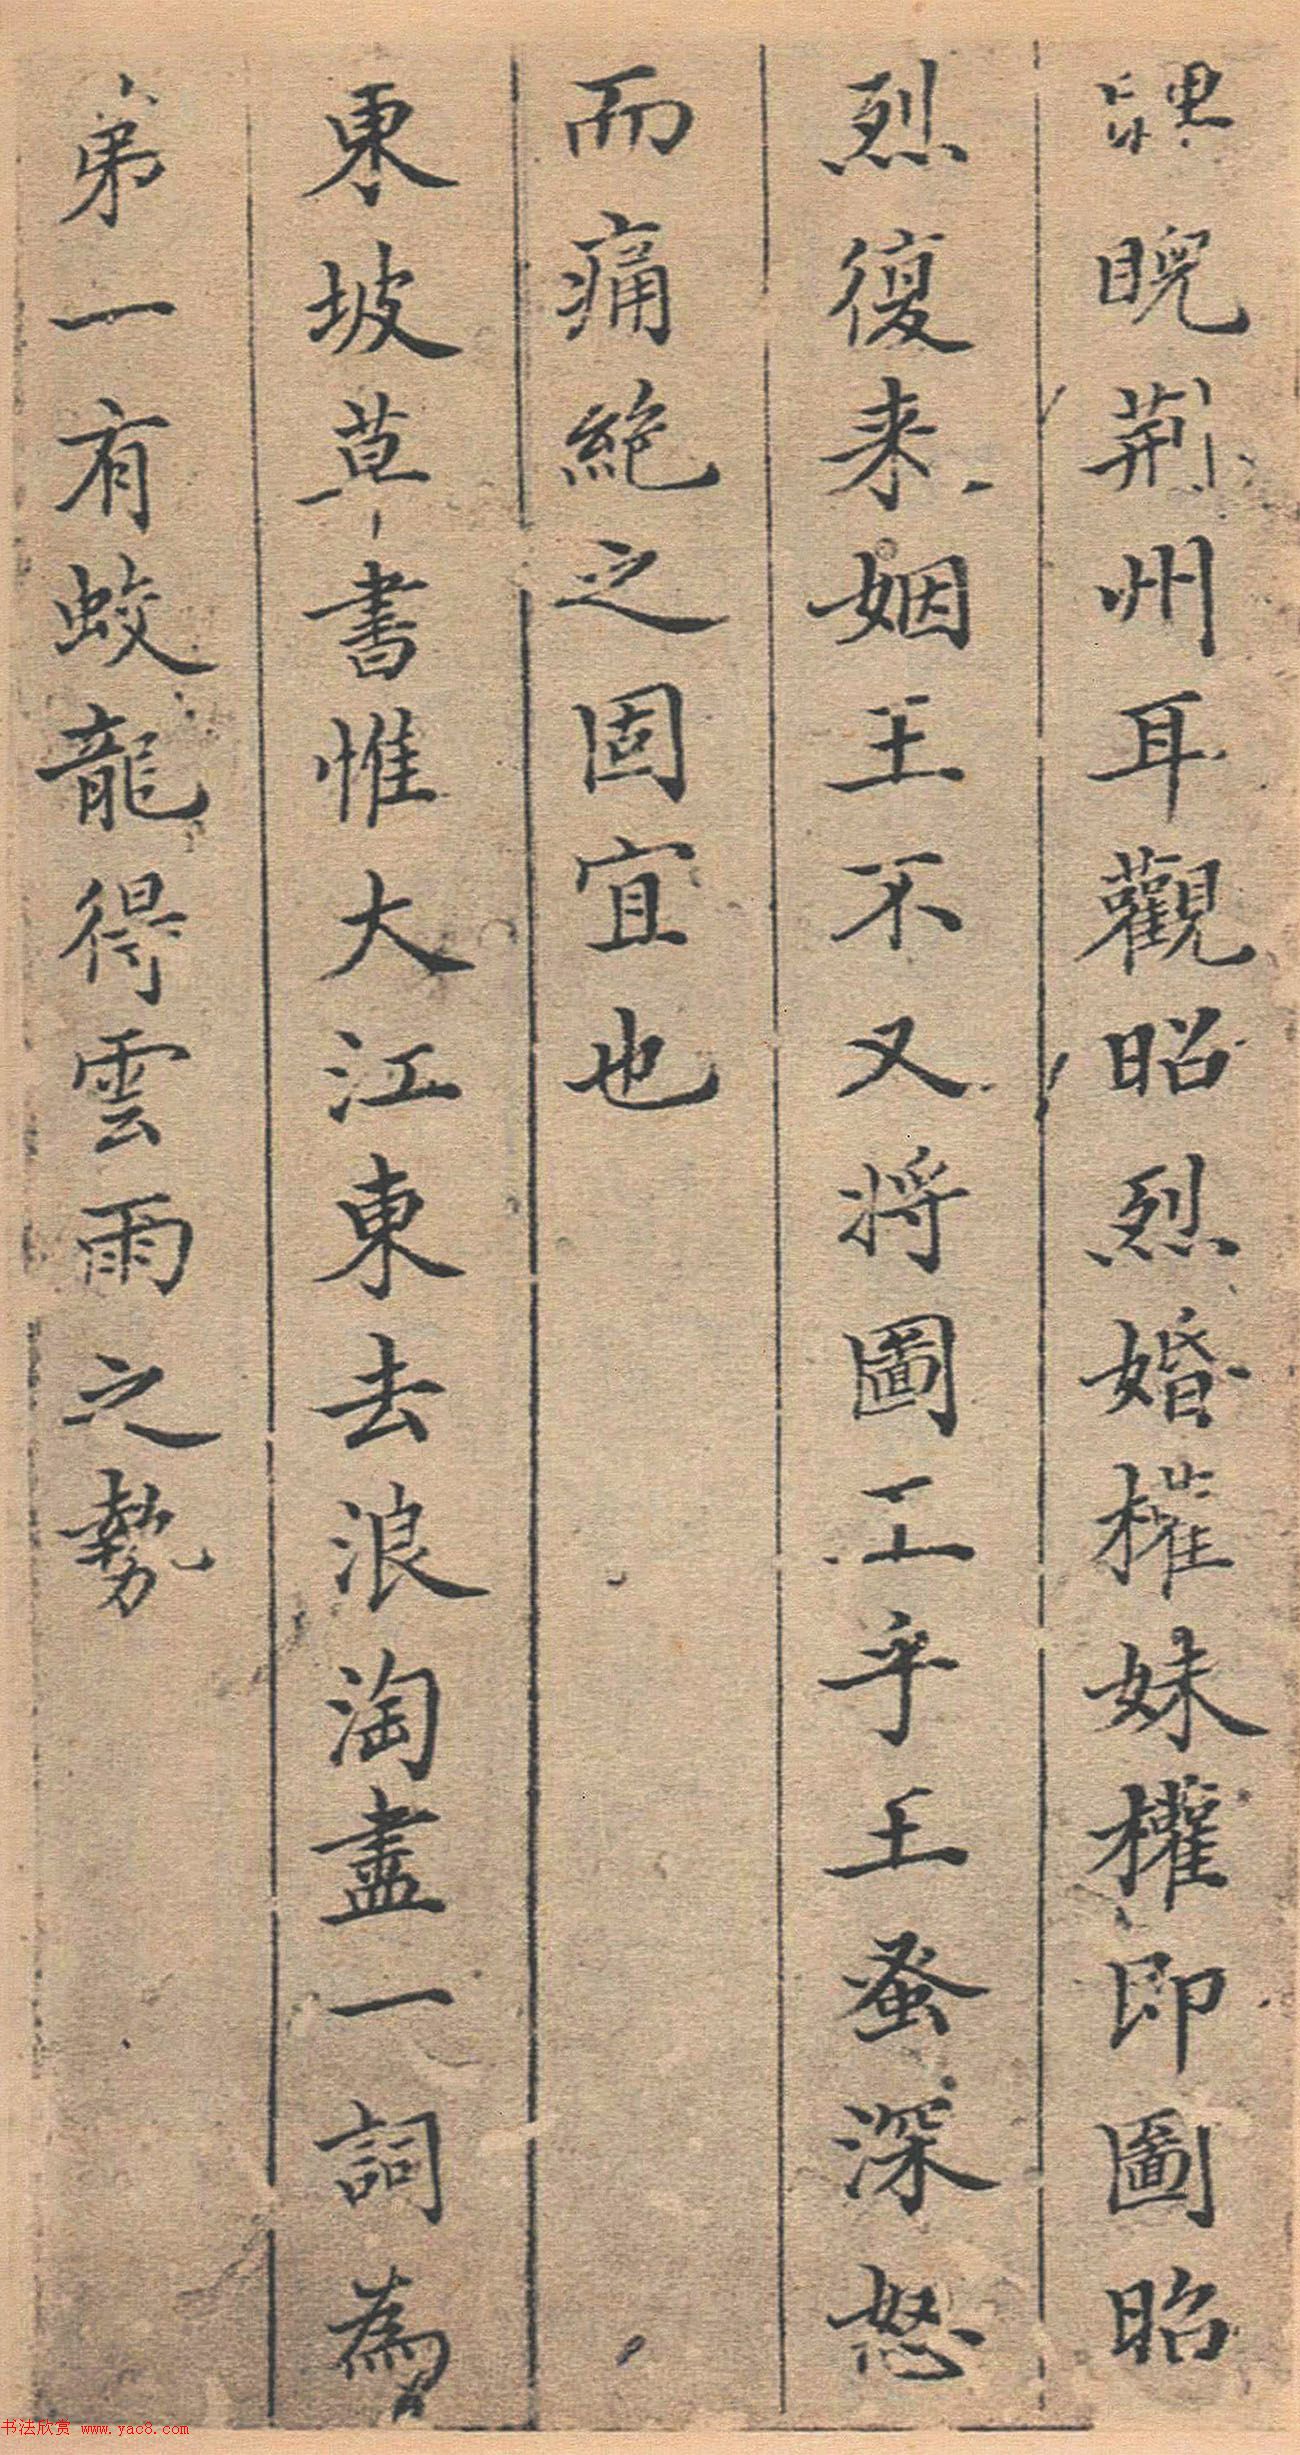 睨荊州耳觀昭烈婚權妹權即圖昭
烈復来姻王不又將圖工乎王蚤深怒
而痛絶之固宜也
東坡草書惟大江東去浪淘盡一詞為
弟一有蛟龍得雲雨之勢
书法欣赏 www.yac8.com